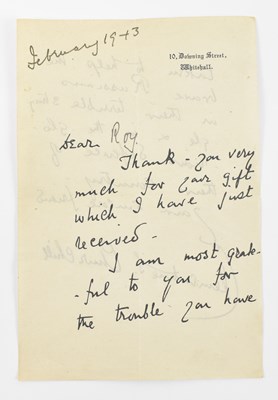 February 1943
10, Downing Street,
Whitehall.
Dear Roy
Thank - you very
much for your gift
which I have just
received -
I am most grate-
-ful to you for
the trouble you have